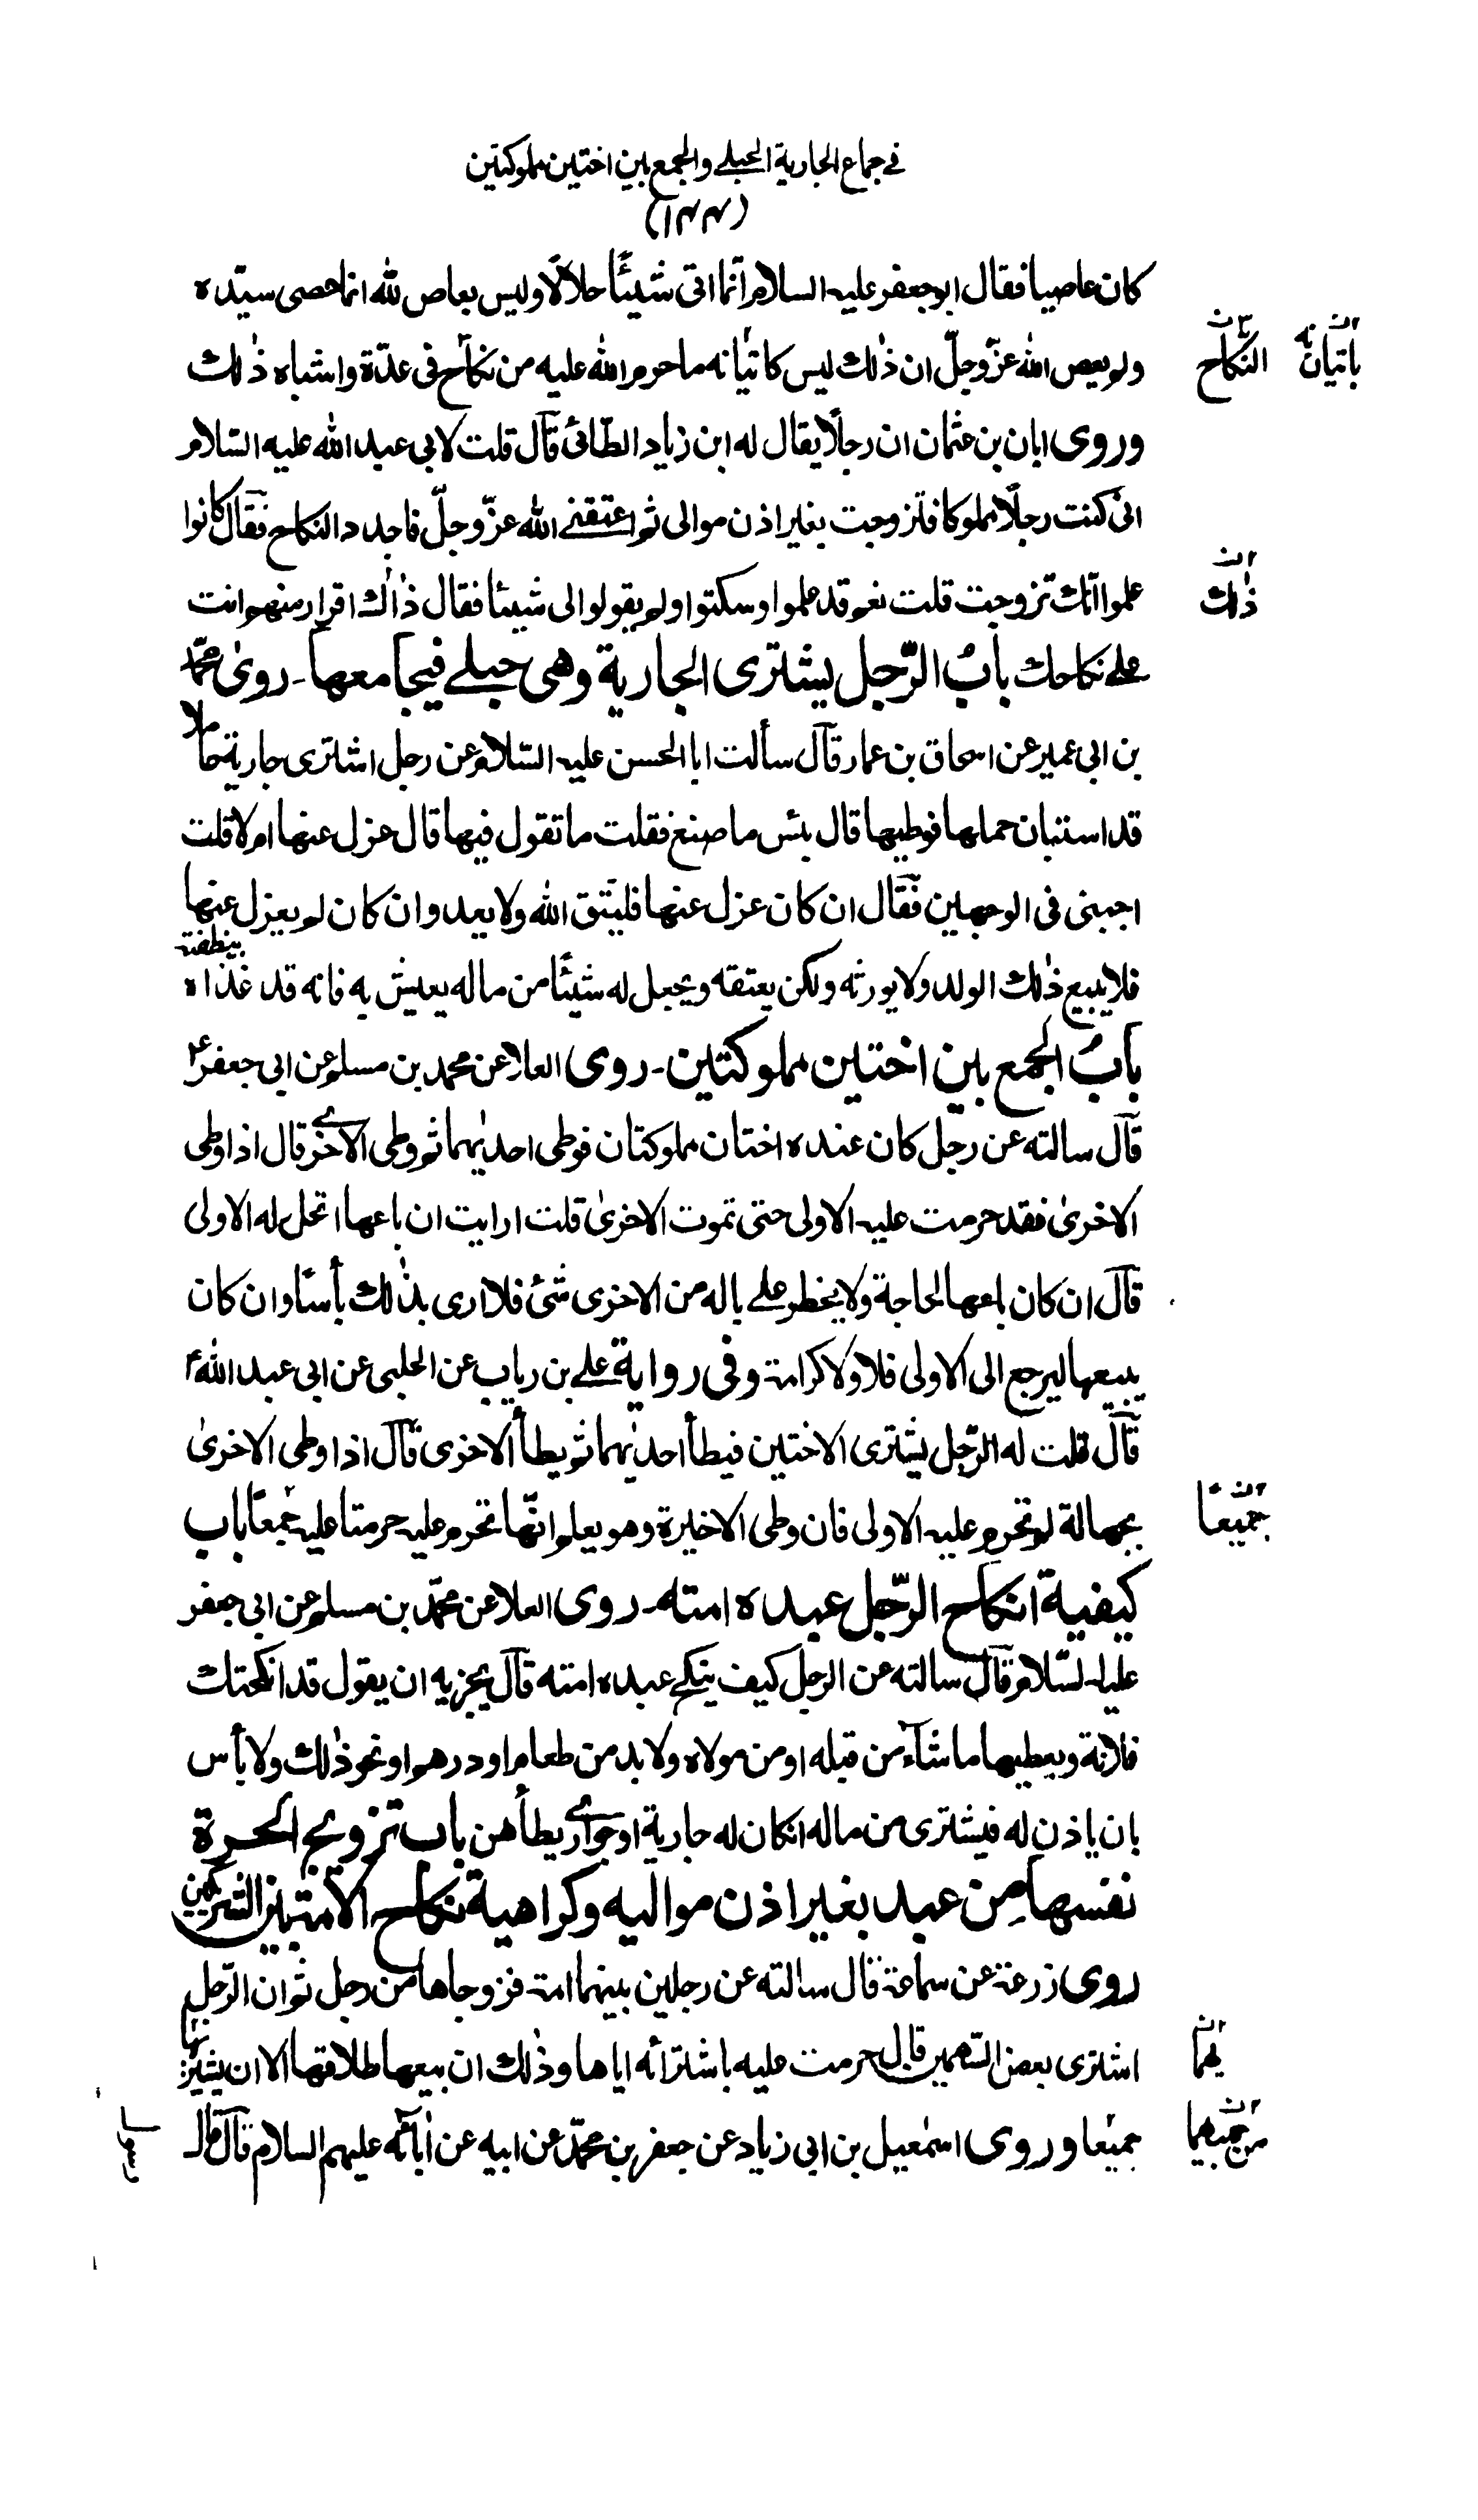 في جماع الجارية الحبلى والجمع بين اختين مملوكتين
(١٤٤)
كان عاصيا فقال ابو جعفر عليه السلام انّما اتى شيئًا حلالًا وليس بعاص لله انما عصى سيّده
ولم يعص الله عزّ وجلّ ان ذٰلك ليس كاتيانه ما حرم الله عليه من نكاح فى عدّة واشباه ذٰلك
باتيانه
النكاح
وروى ابان بن عثمان ان رجلًا يقال له ابن زياد الطّائى قال قلت لابي عبد الله عليه السّلام
انى كنت رجلًا مملوكا فتزوجت بغير اذن موالى ثم اعتقنى الله عزّ وجلّ فاجدد النكاح فقال كانوا
علموا انّك تزوجت قلت نعم قد علموا وسكتوا ولم يقولوا لى شيئا فقال ذٰلك اقرار منهم وانت
ذٰلك
على نكاحك بابُ الرّجل يشترى الجارية وهى حبلى فيجامعها ـ روىٰ محمّد
بن ابى عمير عن اسحاق بن عمار قال سألت ابا الحسن عليه السّلام عن رجل اشترى جارية حاملا
قد استبان حملها فوطيها قال بئس ما صنع فقلت ما تقول فيها قال عزل عنها ام لا قلت
اجبنى فى الوجهين فقال ان كان عزل عنها فليتق الله ولا يعد وان كان لم يعزل عنها
فلا يبيع ذٰلك الولد ولا يورثه ولكن يعتقه ويجعل له شيئًا من ماله يعيش به فانه قد غذاه
بنطفته
بابُ الجمع بين اختين مملوكتين ـ روى العلا عن محمد بن مسلم عن ابى جعفر ع
قال سالته عن رجل كان عنده اختان مملوكتان فوطى احديٰهما ثم وطى الاخرى قال اذا وطى
الاخرىٰ فقد حرمت عليه الاولى حتى تموت الاخرىٰ قلت ارايت ان باعها اتحل له الاولى
قال ان كان باعها لحاجة ولا يخطر على باله من الاخرى شئ فلا ارى بذٰلك بأسًا وان كان
يبيعها ليرجع الى الاولى فلا ولا كرامة وفى رواية على بن رياب عن الحلبى عن ابى عبد الله ع
قال قلت له الرّجل يشترى الاختين فيطأ احديٰهما ثم يطأ الاخرى قال اذا وطى الاخرىٰ
بجهالة لم تحرم عليه الاولى فان وطى الاخيرة وهو يعلم انّها تحرم عليه حرمتا عليه جمعًا باب
جميعًا
كيفية انكاح الرّجل عبده امته ـ روى العلا عن محمّد بن مسلم عن ابى جعفر
عليه السّلام قال سالته عن الرجل كيف ينكح عبده امته قال يجزيه ان يقول قد انكحتك
فلانة ويعطيها ما شاء من قبله او من مولاه ولا بد من طعام او درهم او نحو ذٰلك ولا بأس
بان ياذن له فيشترى من ماله ان كان له جارية او جوارى يطأهن باب تزويج الحرة
نفسها من عبد بغير اذن مواليه وكراهية نكاح الامة بين الشريكين
روى زرعة عن سماعة قال سالته عن رجلين بينهما امة فزوجاها من رجل ثم ان الرّجل
اشترى بعض السّهمين قال حرمت عليه باشترائه اياها وذٰلك ان بيعها طلاقها الا ان يشتريها
جميعًا وروى اسمٰعيل بن ابى زياد عن جعفر بن محمّد عن ابيه عن اٰبائه عليهم السلام قال قال
من جميعهما